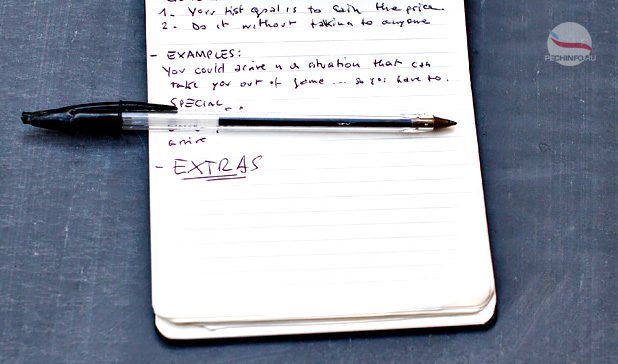 1. Your first goal is to gain the price
2. Do it without talking to anyone
- EXAMPLES:
You could arrive in a situation that can
take you out of game ... so you have to.
SPECIAL...
arrive
- EXTRAS
PECHINFO.RU